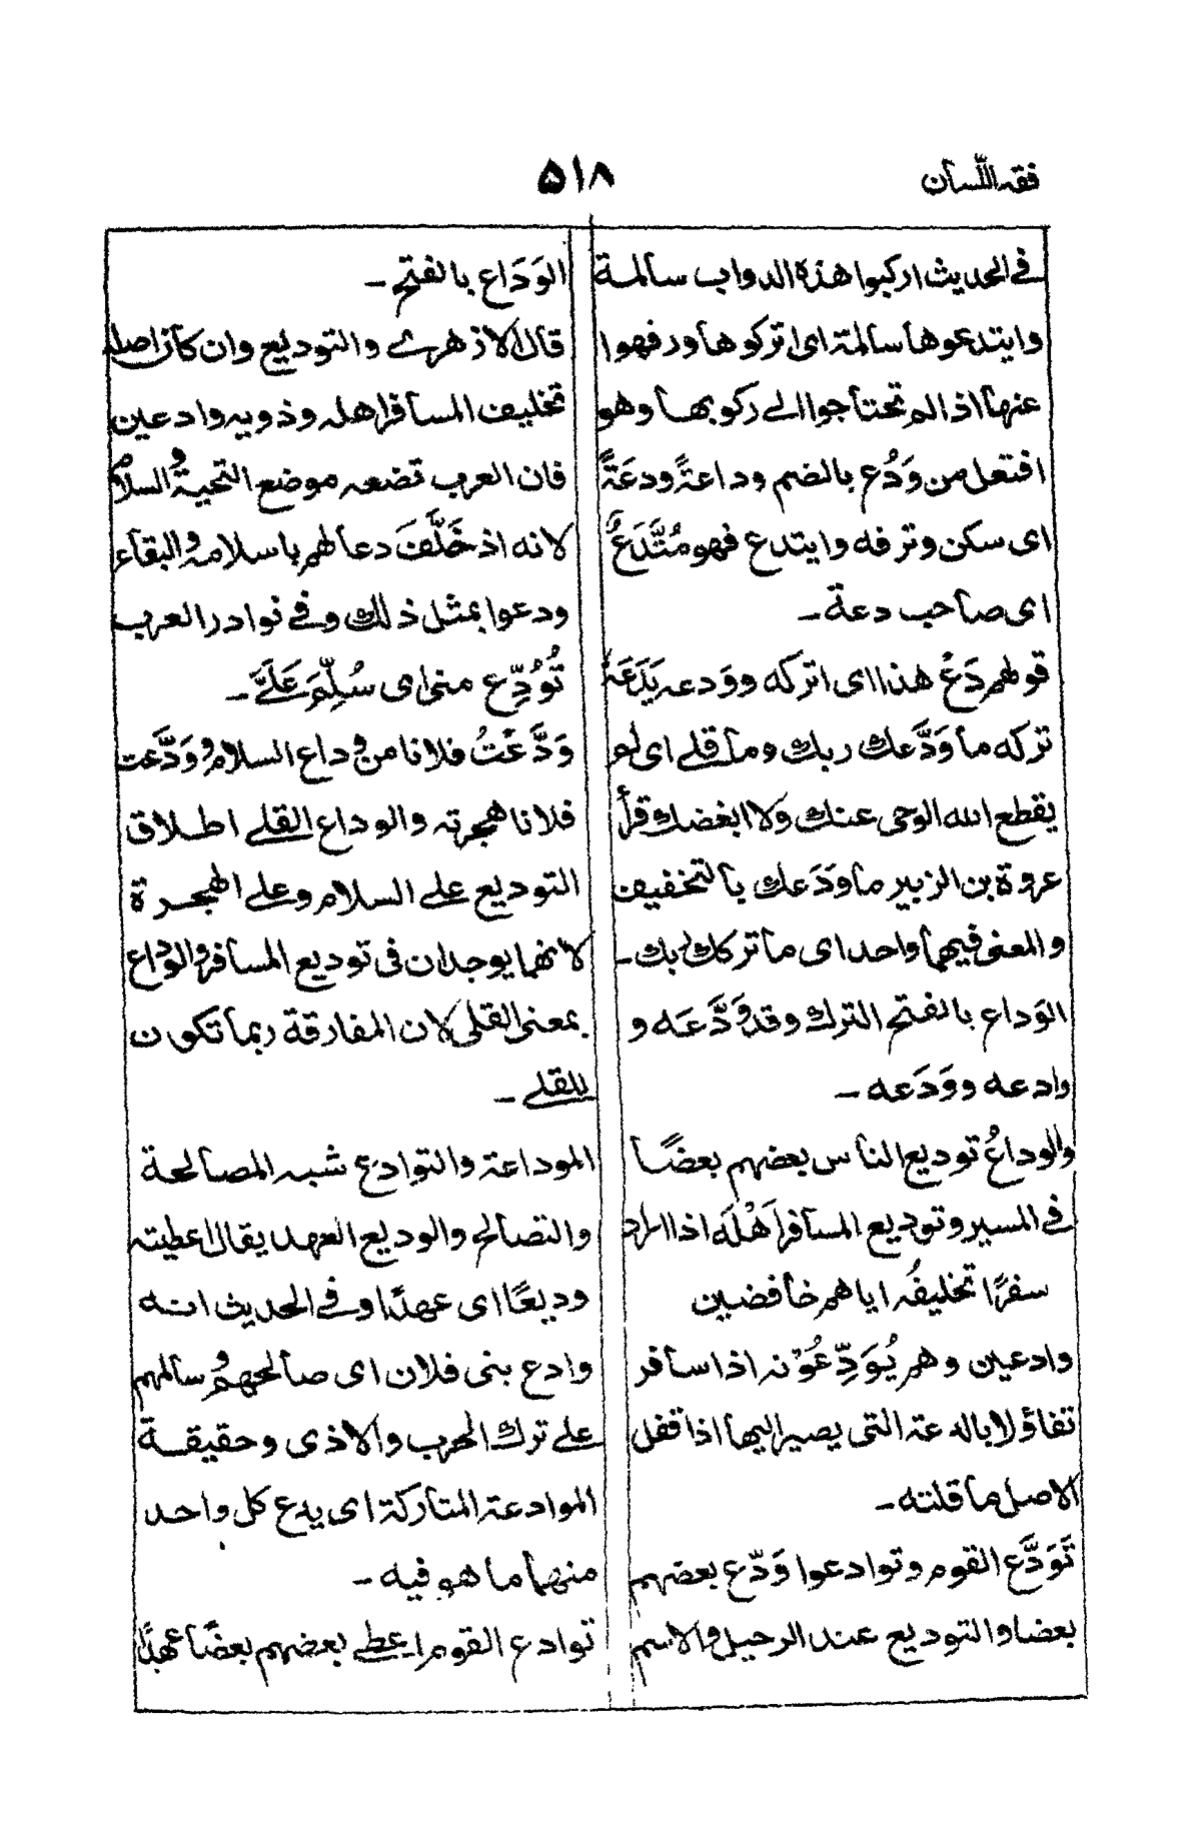 فقه اللّسان
۵۱۸
فى الحديث اركبوا هذه الدواب سالمة
وايتدعوها سالمة اى اتركوها ورفهوا
عنها اذا لم تحتاجوا الى ركوبها وهو
افتعل من وَدُع بالضم وداعةً ودعَةً
اى سكن وترفه وايتدع فهو مُتَّدَعٌ
اى صاحب دعة ـ
قولهم دَعْ هذا اى اتركه وودعه يَدَعَه
تركه ما وَدَّعك ربك وما قلى اى لم
يقطع الله الوحى عنك ولا ابغضك وقرأ
عروة بن الزبير ما ودَعك بالتخفيف
والمعنى فيهما واحد اى ما تركك ربك ـ
الوَداع بالفتح الترك وقد وَدَّعَه و
وادعه ووَدَعه ـ
والوداعُ توديع الناس بعضهم بعضًا
فى المسير وتوديع المسافر اَهْلَه اذا اراد
سفرًا تخليفُه اياهم خافضين
وادعين وهم يُوَدِّعُوْنه اذا سافر
تفاؤلا بالدعة التى يصير اليها اذا قفل
الاصل ما قلته ـ
تَوَدَّع القوم وتوادعوا وَدّع بعضهم
بعضا والتوديع عند الرحيل والاسم
الوَدَاع بالفتح ـ
قال الازهرى والتوديع وان كان اصله
تخليف المسافر اهله وذويه وادعين
فان العرب تضعه موضع التحية والسلام
لانه اذ خَلَّفَ دعا لهم باسلامة والبقاء
ودعوا بمثل ذلك وفى نوادر العرب
تُوُدِّع منى اى سُلِّمَ عَلَىَّ ـ
وَدَّعْتُ فلانا من وداع السلام ووَدَّعت
فلانا هجرته والوداع القلى اطلاق
التوديع على السلام وعلى الهجرة
لانهما يوجدان فى توديع المسافر والوداع
بمعنى القلى لان المفارقة ربما تكون
للقلى ـ
الموداعة والتوادع شبه المصالحة
والتصالح والوديع العهد يقال اعطيته
وديعًا اى عهدًا وفى الحديث انه
وادع بنى فلان اى صالحهم وسالمهم
على ترك الحرب والاذى وحقيقة
الموادعة المتاركة اى يدع كل واحد
منهما ما هو فيه ـ
توادع القوم اعطى بعضهم بعضًا عهدًا